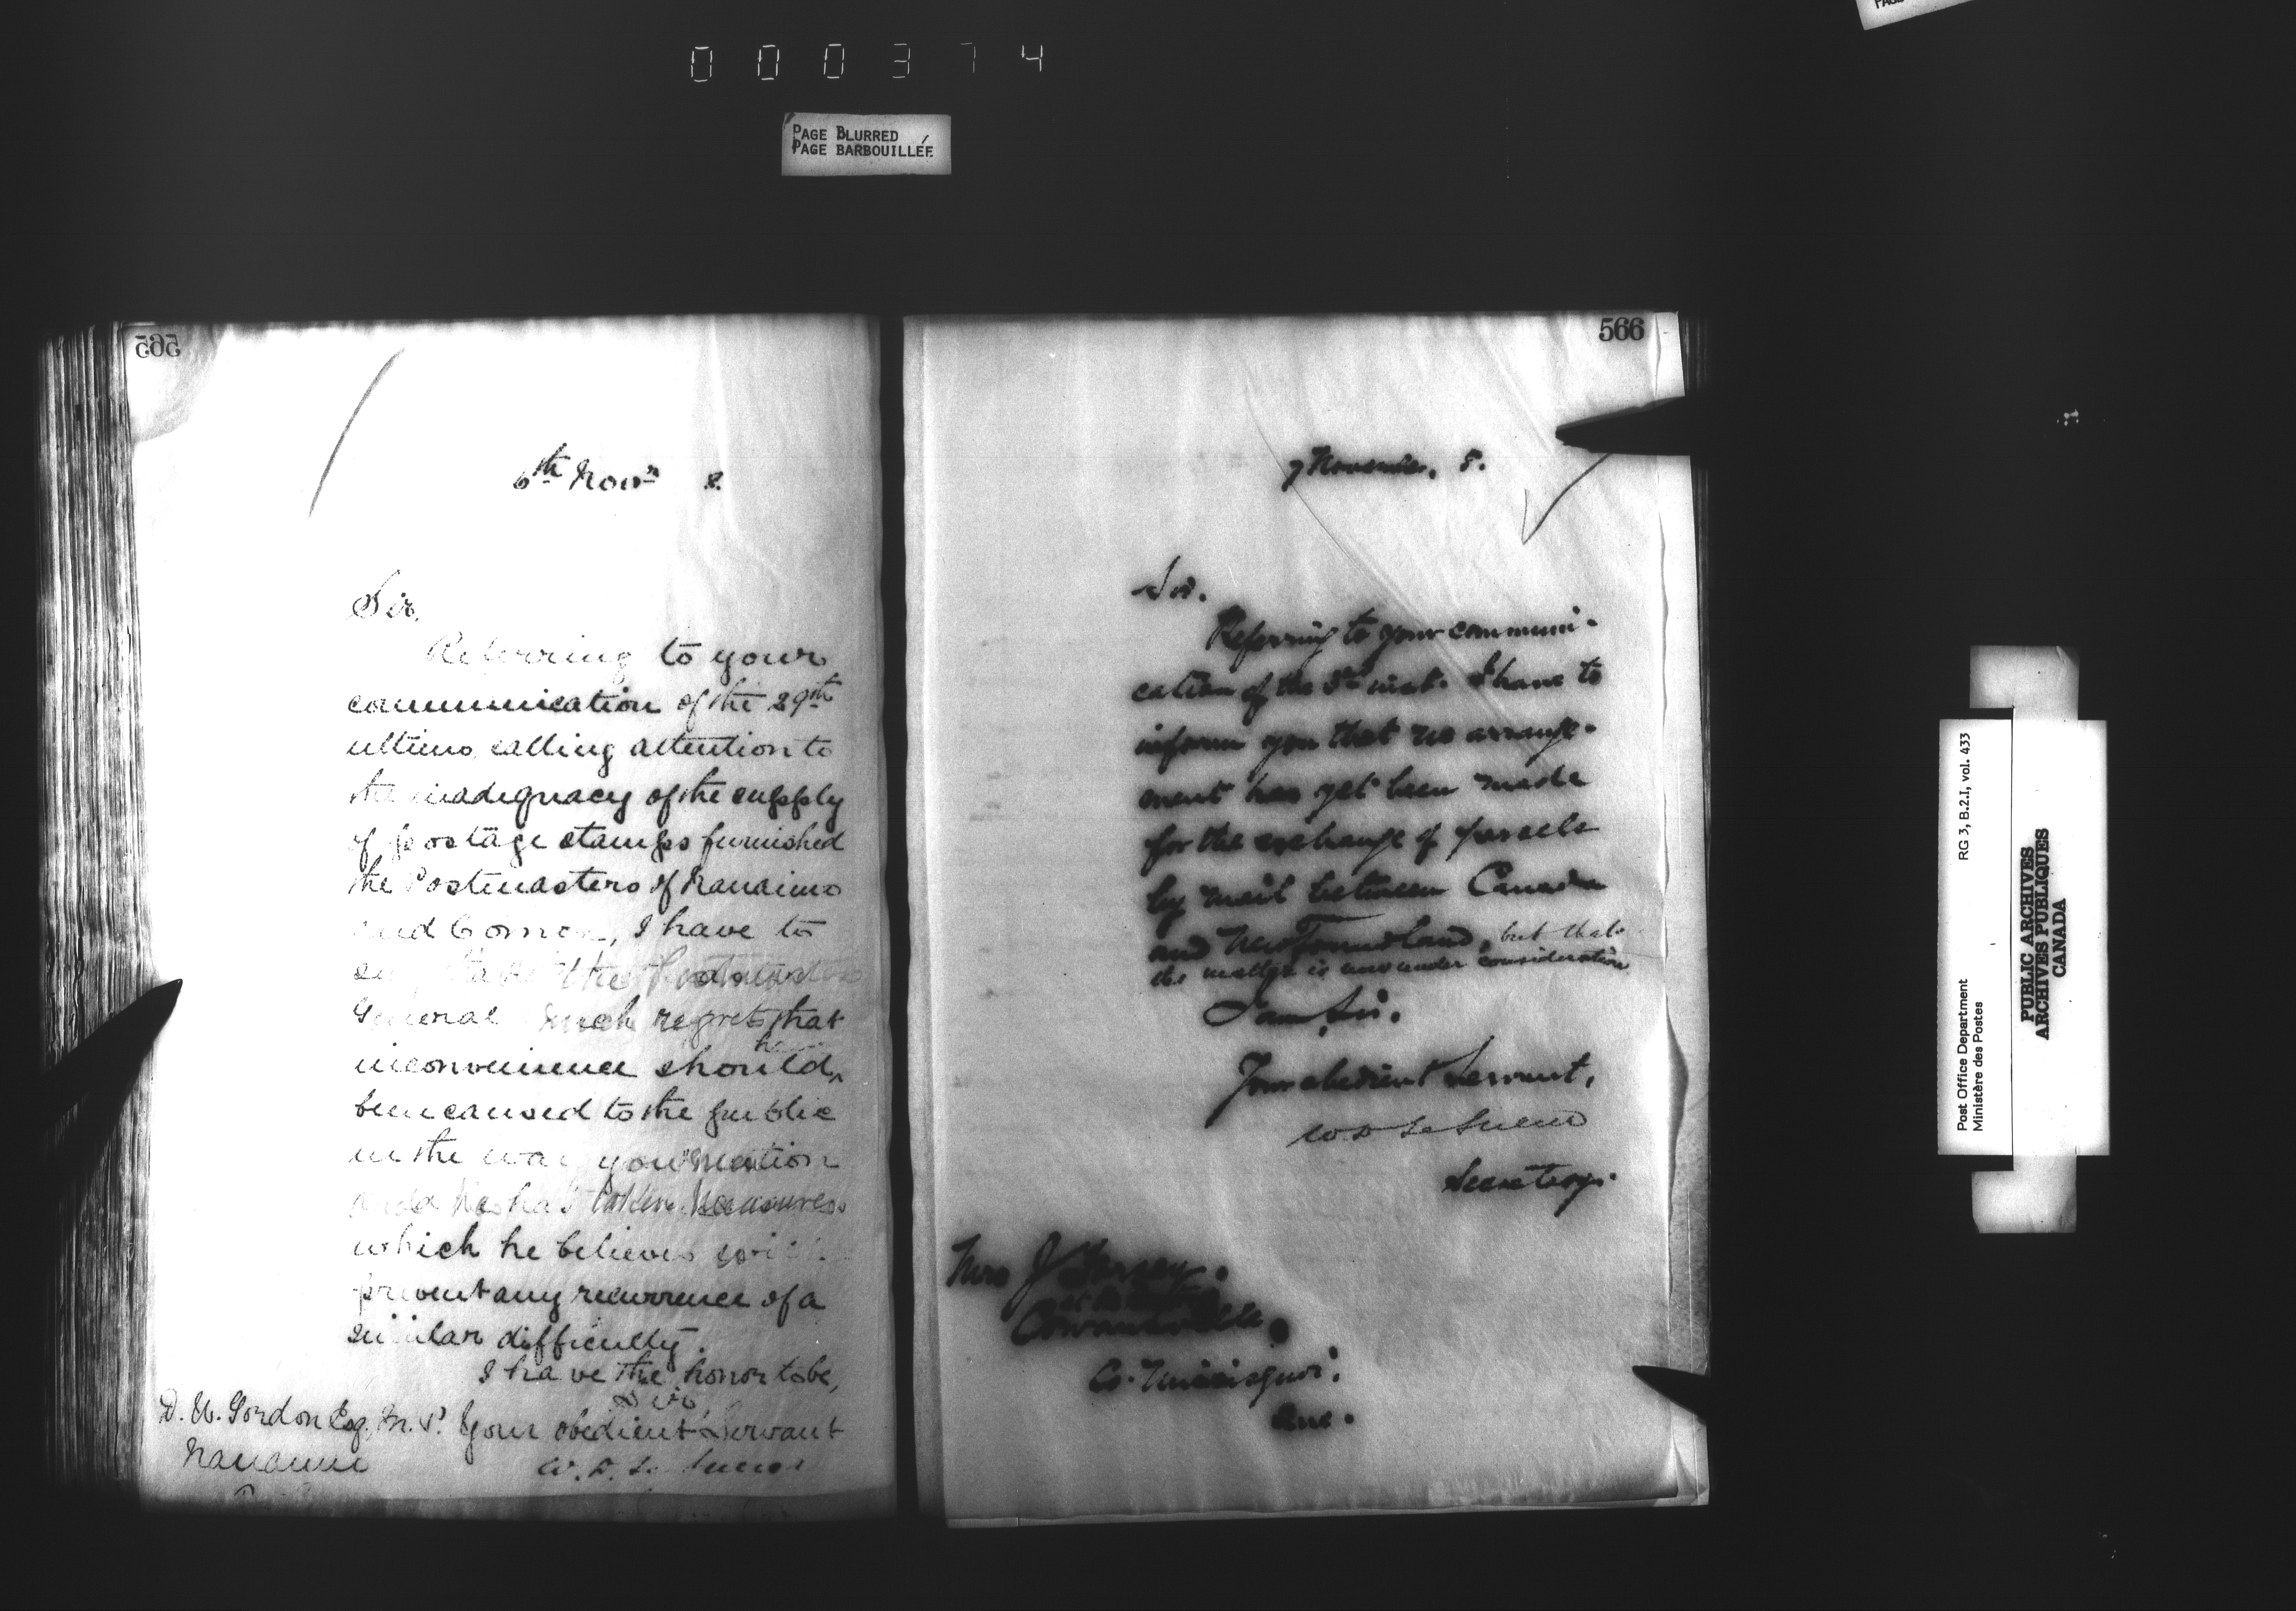 000374
PAGE BLURRED
PAGE BARBOUILLÉE
565
6th Novr 8.
Sir,
Referring to your
communication of the 29th
ultimo, calling attention to
the inadequacy of the supply
of postage stamps furnished
the Postmasters of Nanaimo
and Comox, I have to
the Postmaster
General much regrets that
inconvenience should
been caused to the public
in the way you mention
and he has taken measures
which he believes will
prevent any recurrence of a
similar difficulty.
I have the honor to be,
Sir,
Your obedient Servant
W. D. Le Sueur
D. W. Gordon Esq. M.P.
Nanaimo
566
7 November, 8.
Sir.
Referring to your communi-
cation of the inst. I have to
inform you that no arrange-
ment has yet been made
for the exchange of parcels
by mail between Canada
and Newfoundland, but that
the matter is now under consideration
I am, Sir.
Your obedient Servant,
W D Le Sueur
Secretary.
Mrs J
Cowansville.
Co. Missisquoi.
Que.
Post Office Department
Ministère des Postes
RG 3, B.2.I, vol. 433
PUBLIC ARCHIVES
ARCHIVES PUBLIQUES
CANADA